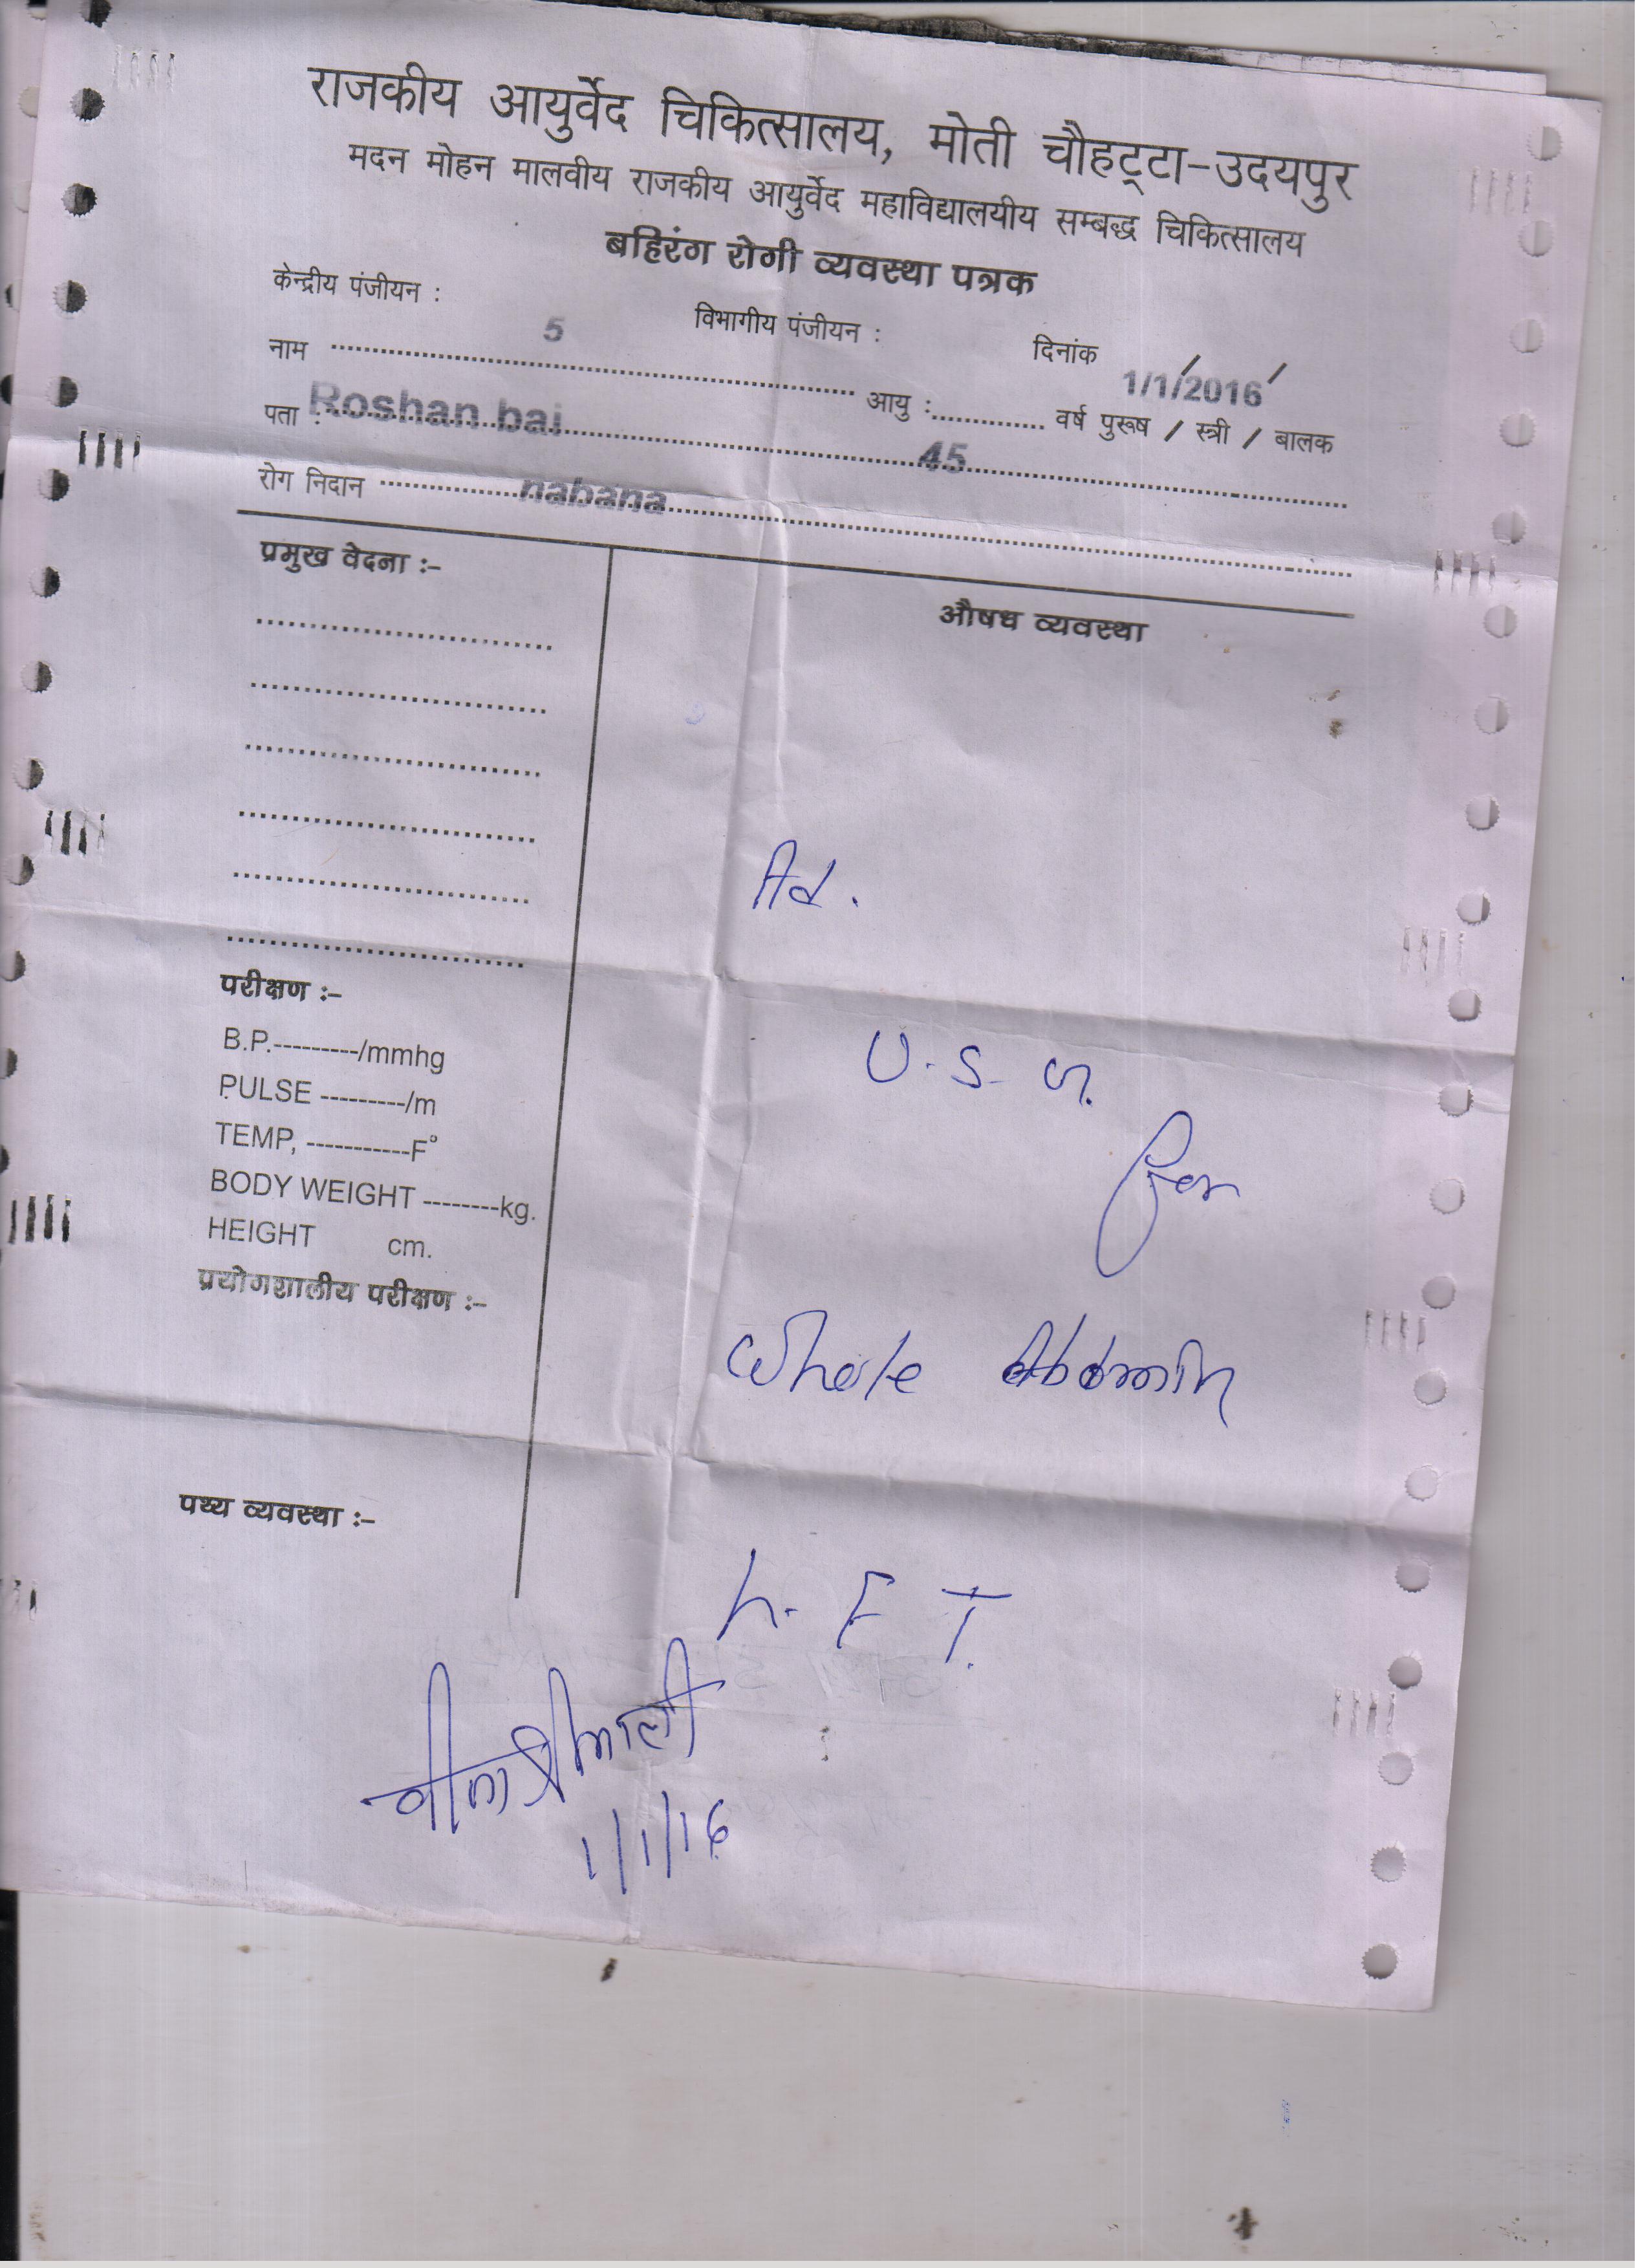 राजकीय आयुर्वेद चिकित्सालय, मोती चौहट्टा-उदयपुर
मदन मोहन मालवीय राजकीय आयुर्वेद महाविद्यालयीय सम्बद्ध चिकित्सालय
बहिरंग रोगी व्यवस्था पत्रक
केन्द्रीय पंजीयन : 5 विभागीय पंजीयन : दिनांक / /
1/1/2016
नाम आयु : वर्ष पुरूष / स्त्री / बालक
पता : Roshan bai 45
रोग निदान nabana
प्रमुख वेदना :-
औषध व्यवस्था
Ad.
परीक्षण :-
B.P.---------/mmhg
PULSE ---------/m
TEMP, -----------F°
BODY WEIGHT --------kg.
HEIGHT cm.
प्रयोगशालीय परीक्षण :-
U.S.G.
for
Whole Abdomin
पथ्य व्यवस्था :-
L.F.T.
1/1/16